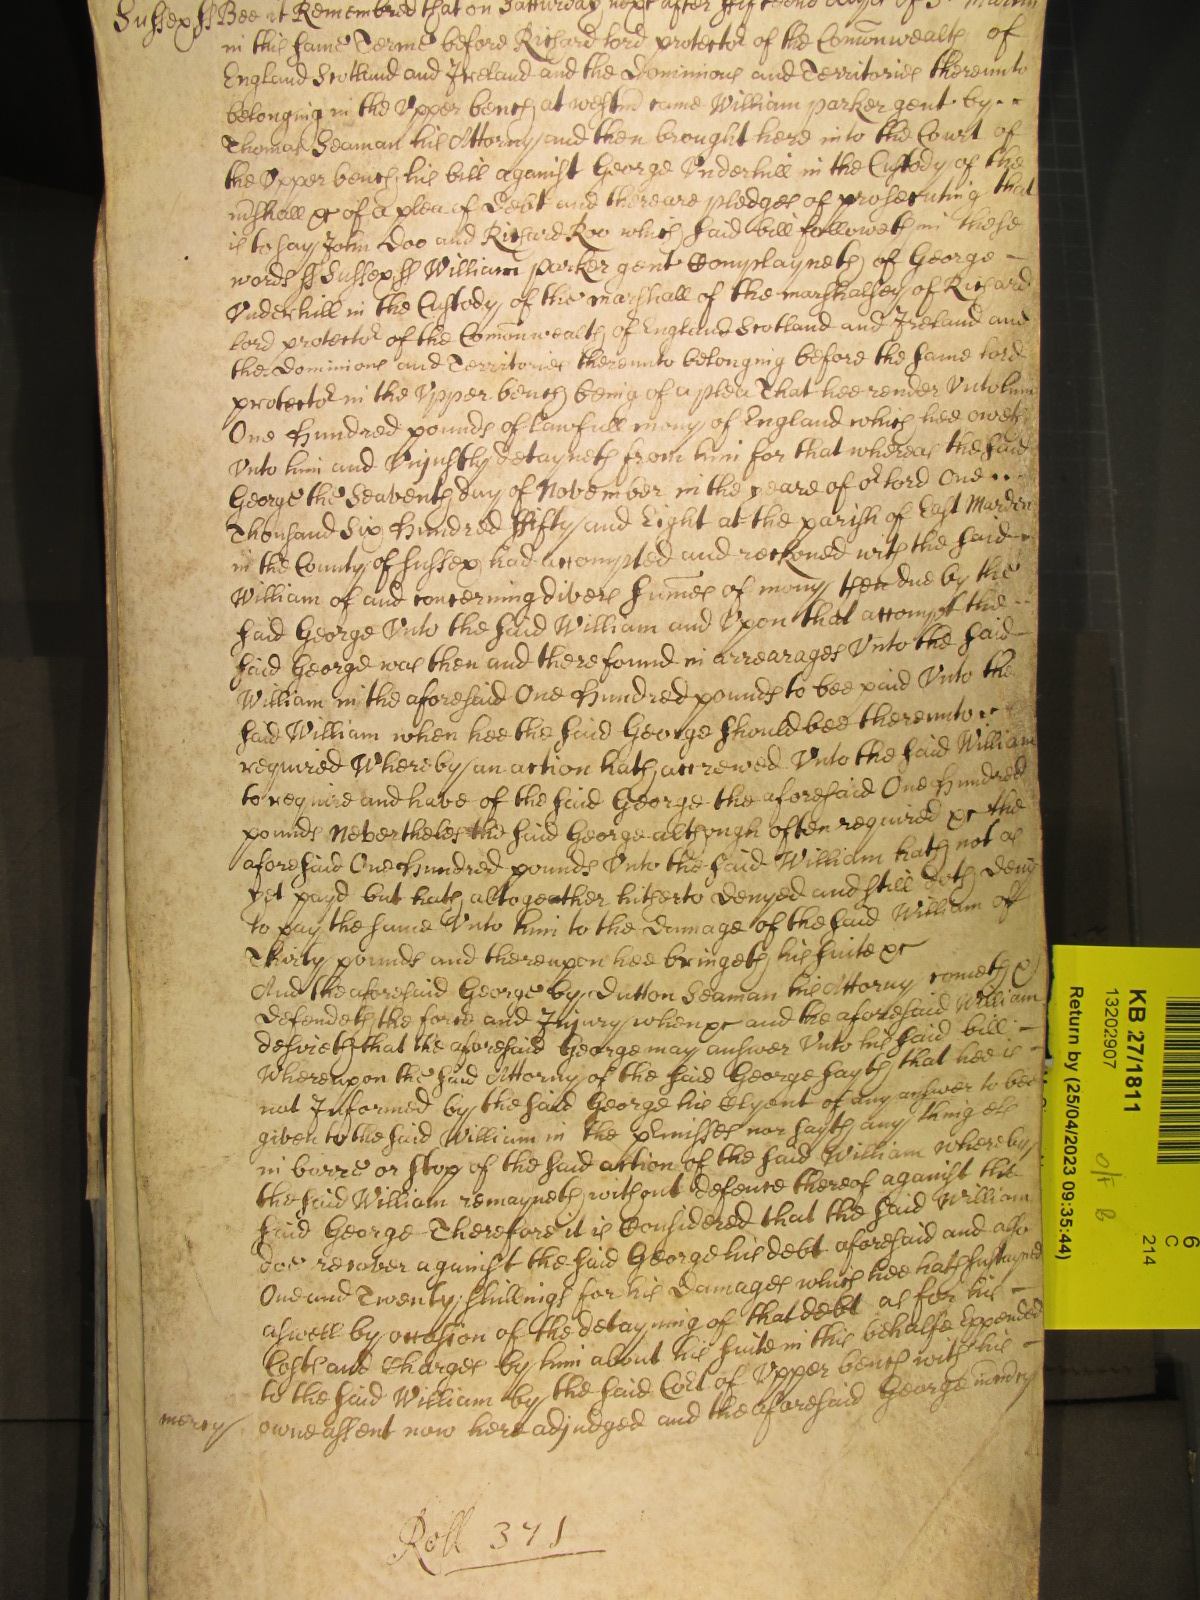 Sussex ss Bee it Remembred that on Satturday next after fifteene dayes of St. Martin
in this same Terme before Richard lord protector of the Comonwealth of
England Scotland and Ireland and the Dominions and Territories thereunto
belonging in the Upper bench at westm came William parker gent by
Thomas Seaman his Attorny and then brought here into the Court of
the Upper bench his bill against George Underhill in the Custody of the
mshall &c of a plea of Debt and there are pledges of prosecuting that
is to say John Doo and Richard Roo which said bill followeth in these
words ss Sussex ss William parker gent Complayneth of George
Underhill in the Custody of the marshall of the marshalsey of Richard
lord protector of the Comonwealth of England Scotland and Ireland and
the Dominions and Territories thereunto belonging before the same lord
protector in the Upper bench being of a plea That hee render Unto him
One Hundred pounds of lawfull mony of England which hee oweth
Unto him and Unjustly detayneth from him for that whereas the said
George the Seaventh day of November in the yeare of or lord One
Thousand Six Hundred ffifty and Eight at the parish of East Marden
in the County of Sussex had accompted and reckoned with the said
William of and concerning divers summes of mony then due by the
said George Unto the said William and Upon that accompt the
said George was then and there found in arrearages Unto the said
William in the aforesaid One Hundred pounds to bee paid Unto the
said William when hee the said George should bee thereunto
required Whereby an action hath accrewed Unto the said William
to require and have of the said George the aforesaid One Hundred
pounds Neverthelese the said George although often required &c the
aforesaid One Hundred pounds Unto the said William hath not as
yet payd but hath altogeather hitherto denyed and still doth deny
to pay the same Unto him to the Damage of the said William of
Thirty pounds and thereupon hee bringeth his suite &c
And the aforesaid George by Dutton Seaman his Attorny cometh &
defendeth the force and Injury when &c and the aforesaid William
desireth that the aforesaid George may answer Unto his said bill
Whereupon the said Attorny of the said George sayth that hee is
not Informed by the said George his Clyent of any answer to bee
given to the said William in the pmisses nor sayth any thing els
in barre or stop of the said action of the said William whereby
the said William remayneth without defence thereof against the
said George Therefore it is Considered that the said William
doe recover against the said George his debt aforesaid and also
One and Twenty shillings for his Damages which hee hath sustayned
aswell by occasion of the detayning of that debt as for his
Costs and charges by him about his suite in this behalfe Expended
to the said William by the said Cort of Upper bench with his
mercy owne assent now here adjudged and the aforesaid George in mercy
Roll 371
KB 27/1811
13202907
Return by (25/04/2023 09:35:44)
6
C
214